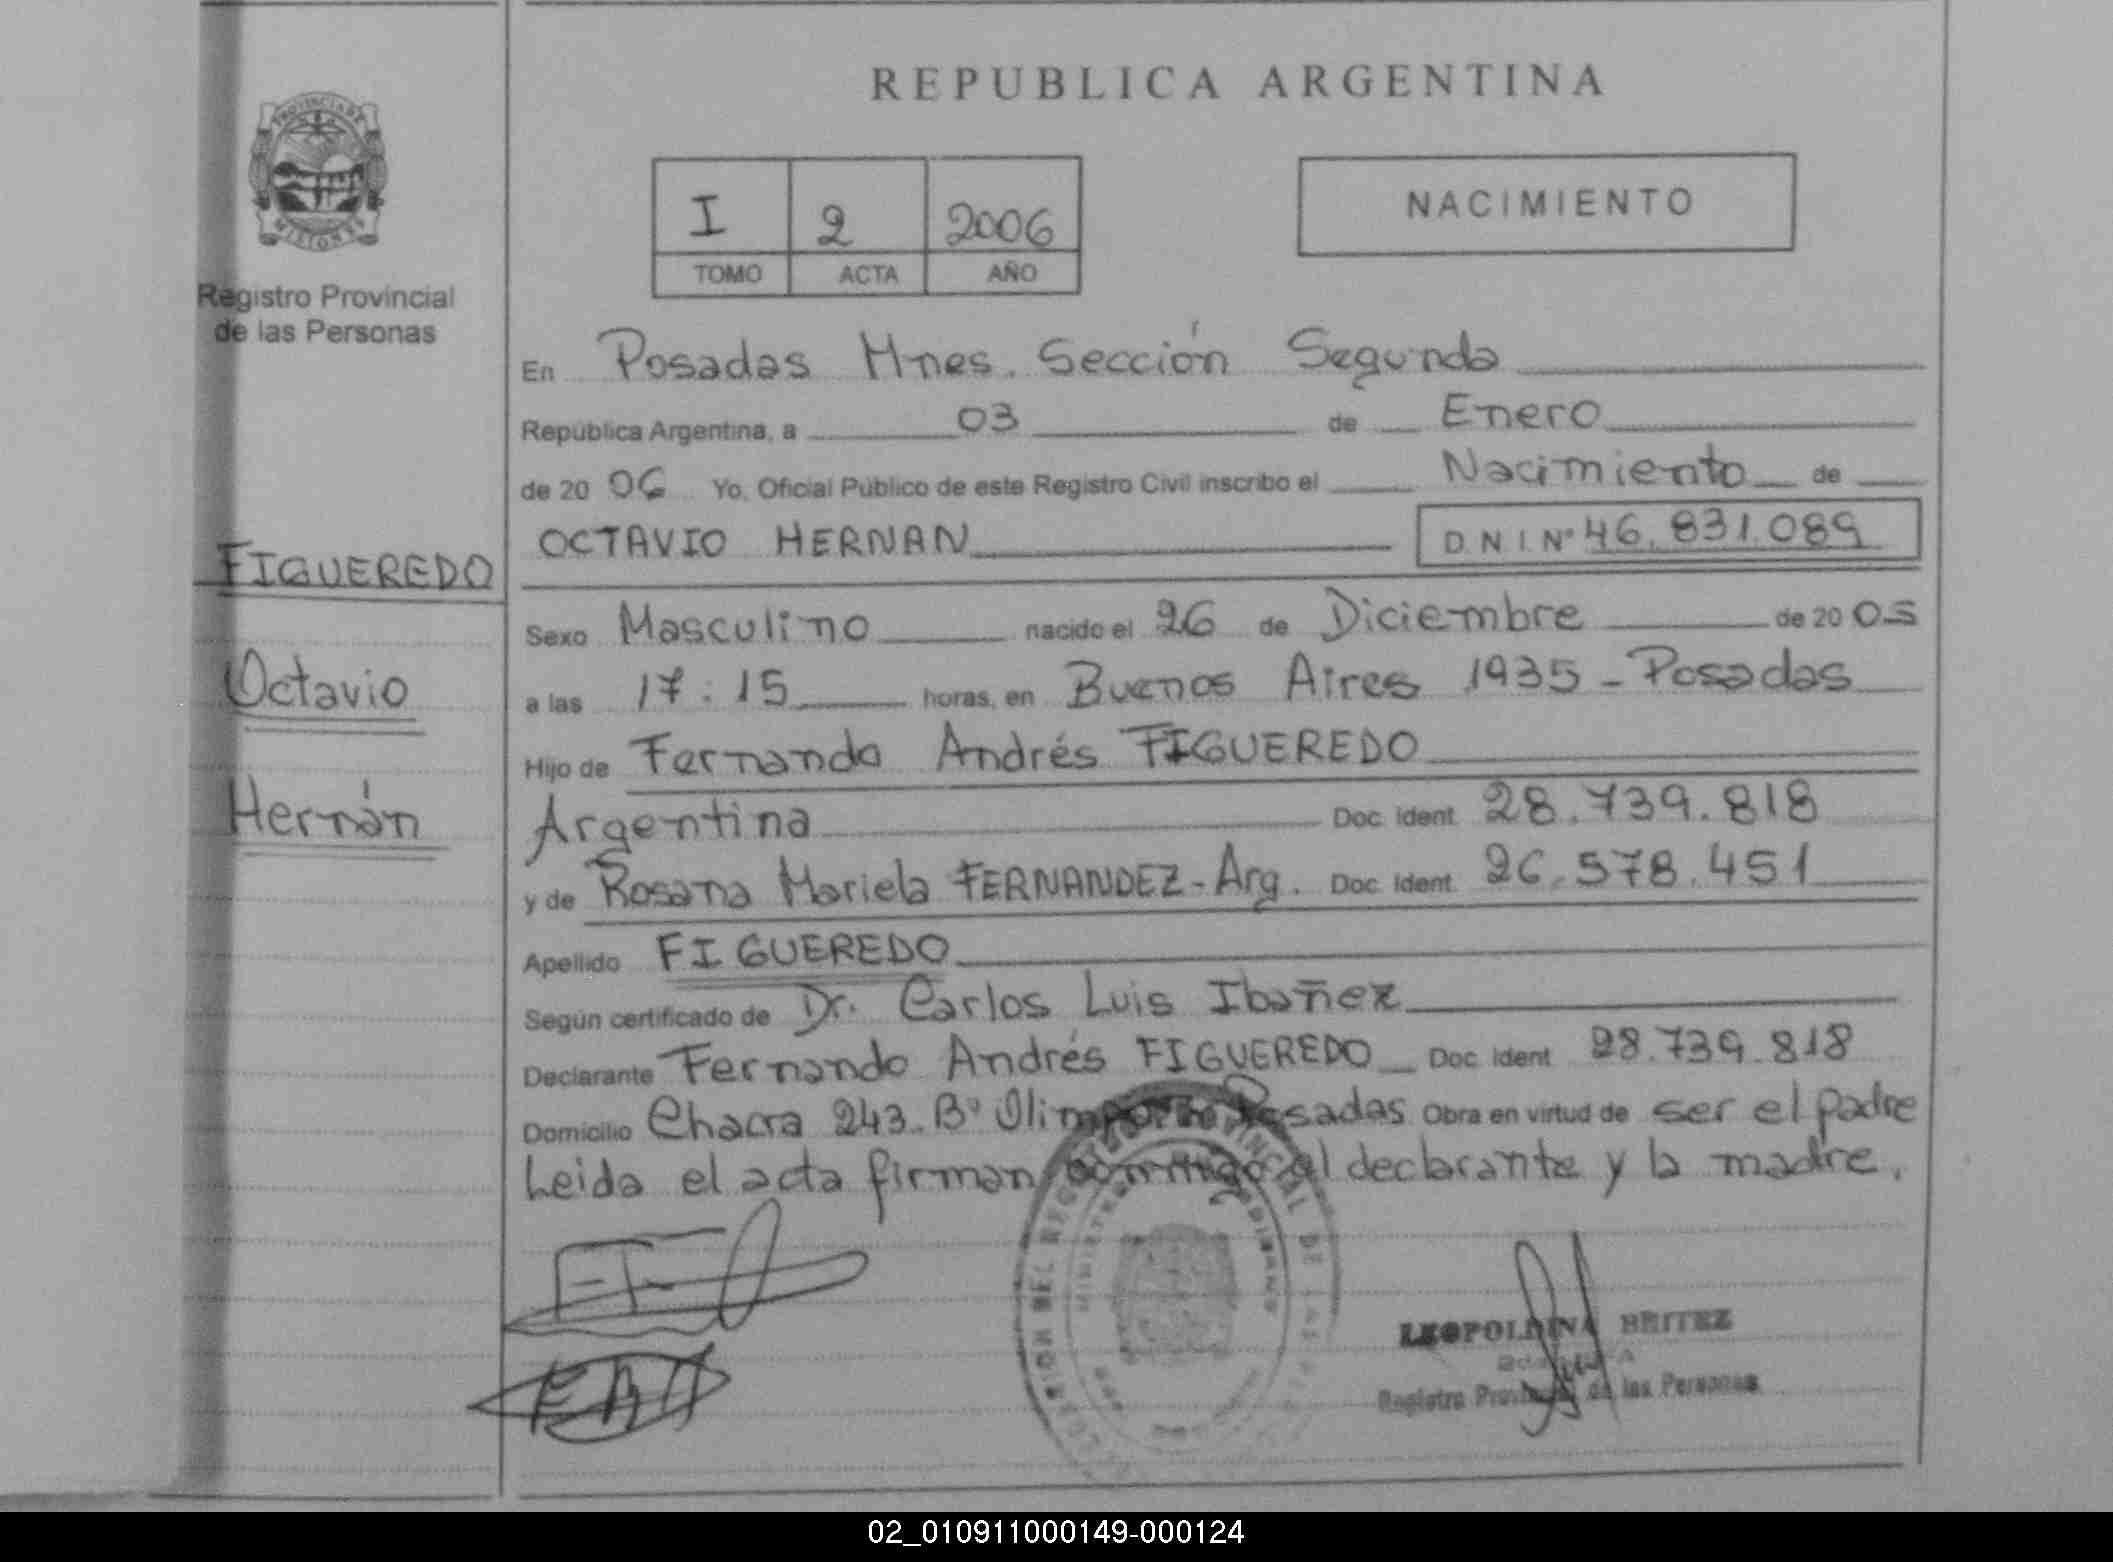 REPUBLICA ARGENTINA
PROVINCIA DE
MISIONES
Registro Provincial
de las Personas
I 2 2006
TOMO ACTA AÑO
NACIMIENTO
En Posadas Mnes. Sección Segunda
República Argentina, a 03 de Enero
de 20 06 Yo, Oficial Público de este Registro Civil inscribo el Nacimiento de
OCTAVIO HERNAN D.N.I. Nº 46.831.089
FIGUEREDO
Octavio
Hernán
Sexo Masculino nacido el 26 de Diciembre de 20 05
a las 17:15 horas, en Buenos Aires 1935 - Posadas
Hijo de Fernando Andrés FIGUEREDO
Argentina Doc. Ident. 28.739.818
y de Rosana Mariela FERNANDEZ - Arg. Doc. Ident. 26.578.451
Apellido FIGUEREDO
Según certificado de Dr. Carlos Luis Ibañez
Declarante Fernando Andrés FIGUEREDO Doc. Ident. 28.739.818
Domicilio Chacra 243. Bº Posadas Obra en virtud de ser el padre
Leida el acta firman conmigo el declarante y la madre.
LEOPOLDINA BRITEZ
Registro Provincial de las Personas
02_010911000149-000124